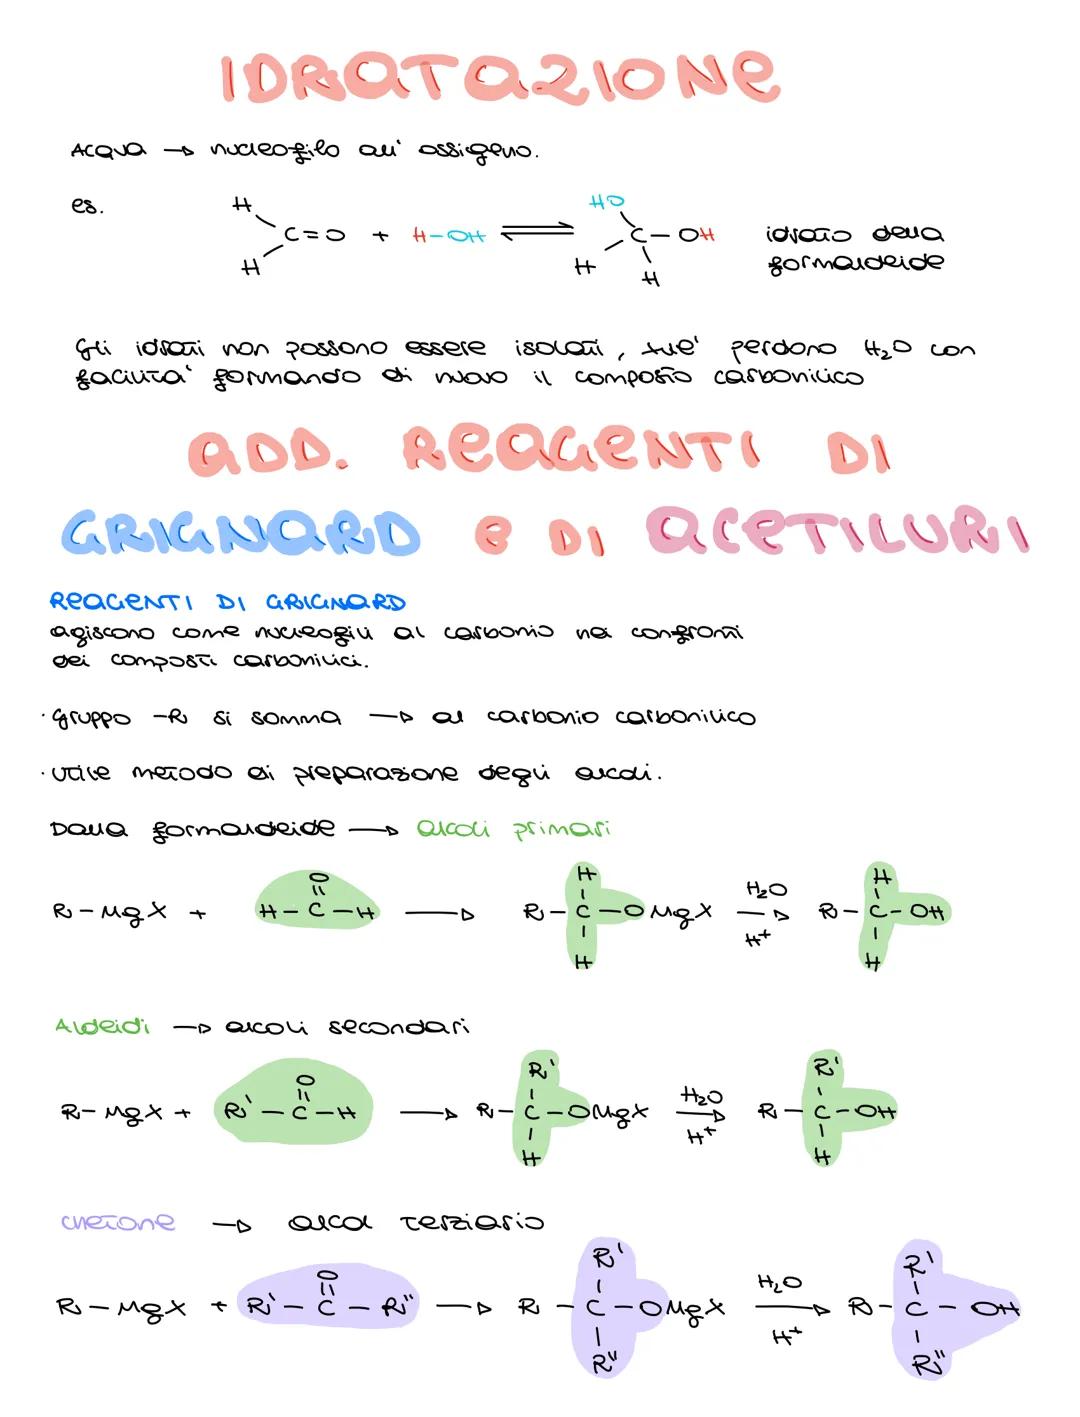 IDRATAZIONE
Acqua → nucleofilo all' ossigeno.
es.
H
H
C=O + H-OH ⇌
HO
C-OH
H
H
idrato della
formaldeide
Gli idrati non possono essere isolati, xke' perdono H₂O con
facilita' formando di nuovo il composto carbonilico
ADD. REAGENTI DI
GRIGNARD E DI ACETILURI
REAGENTI DI GRIGNARD
agiscono come nucleofili al carbonio nei confronti
dei composti carbonilici.
· gruppo -R si somma → al carbonio carbonilico
· utile metodo di preparazione degli alcoli.
Dalla formaldeide → alcoli primari
O
H
H₂O
H
R-MgX + H-C-H → R-C-OMgX → R-C-OH
H
H⁺
H
Aldeidi → alcoli secondari
O
R'
H₂O
R'
R-MgX + R'-C-H → R-C-OMgX → R-C-OH
H
H⁺
H
chetone → alcol terziario
O
R'
H₂O
R'
R-MgX + R'-C-R" → R-C-OMgX → R-C-OH
R"
H⁺
R"